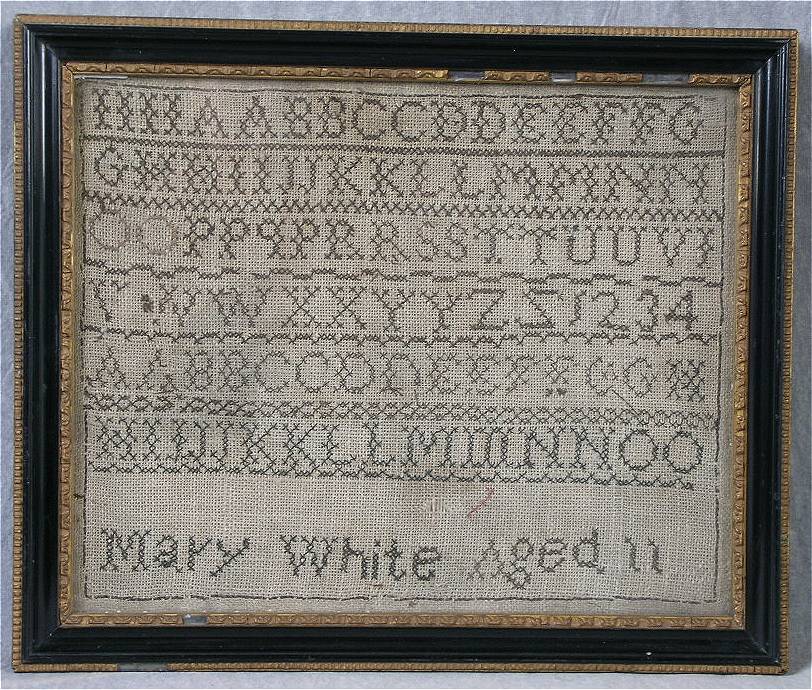 HHAABBCCDDEEFFG
GHHIIJJKKLLMMNN
OOPPqPRRSSTTUUVV
VVWXXYYZZ1234
AABBCCDDEEFFGGH
HIIJJKKLLMMNNOO
Mary White Aged 11